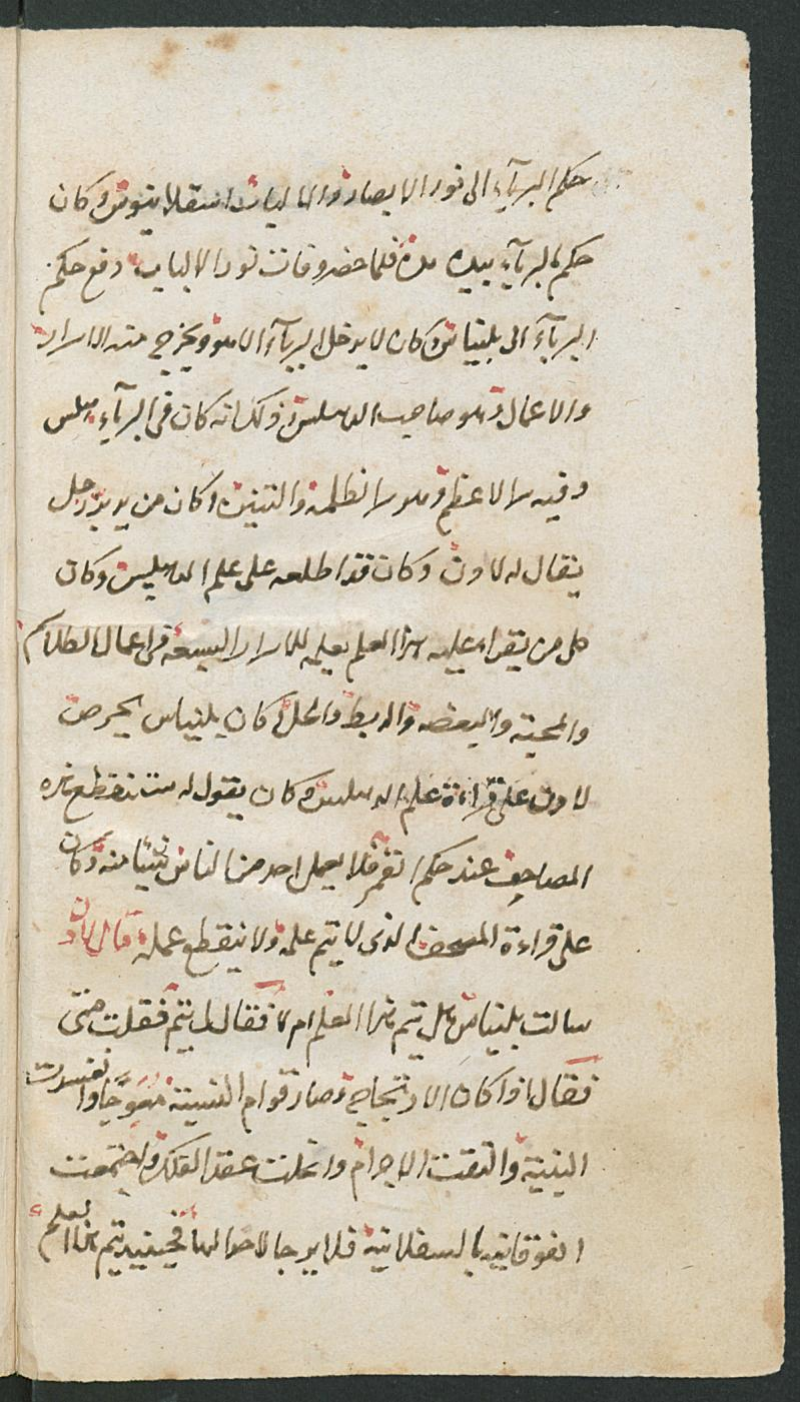 حكم البرآء الى نور الابصار والالباب اسقلاينوس وكان
حكم البرآء بيده مدة فلما حضر وفات نور الالباب دفع حكم
البرآء الى بلنياس كان لا يدخل البرآء الا هو ويخرج منه الاسرار
والاعمال وهو صاحب وذكر انه كان فى البرآء
وفيه سر الاعظم وهو سر الظلمة والتنين وكان من يريد رجل
يقال له لاون وكان قد اطلعه على علم وكان
كل من يقراء عليه هذا العلم يعلمه للاسرار السبعة فى اعمال الطلاسم
والمحبة والبغضه والربط والحل وكان بلنياس يحرص
لاون على قراءة علم وكان يقول له ستنقطع هذه
المصاحف عند حكم القمر فلا يعمل احد من الناس شيئا منه وكان
على قراءة المصحف الذى لا يتم علمه ولا ينقطع عمله قال لاون
سالت بلنياس هل يتم هذا العلم ام لا فقال لى يتم فقلت متى
فقال اذا كان الارتجاج وصار قوام النسبة معوجا وانفسدت
البنية والتقت الاجرام وانحلت عقد الفلك واجتمعت
الفوقانية بالسفلانية فلا يرجا لاحوالها فحينيد يتم هذا العلم